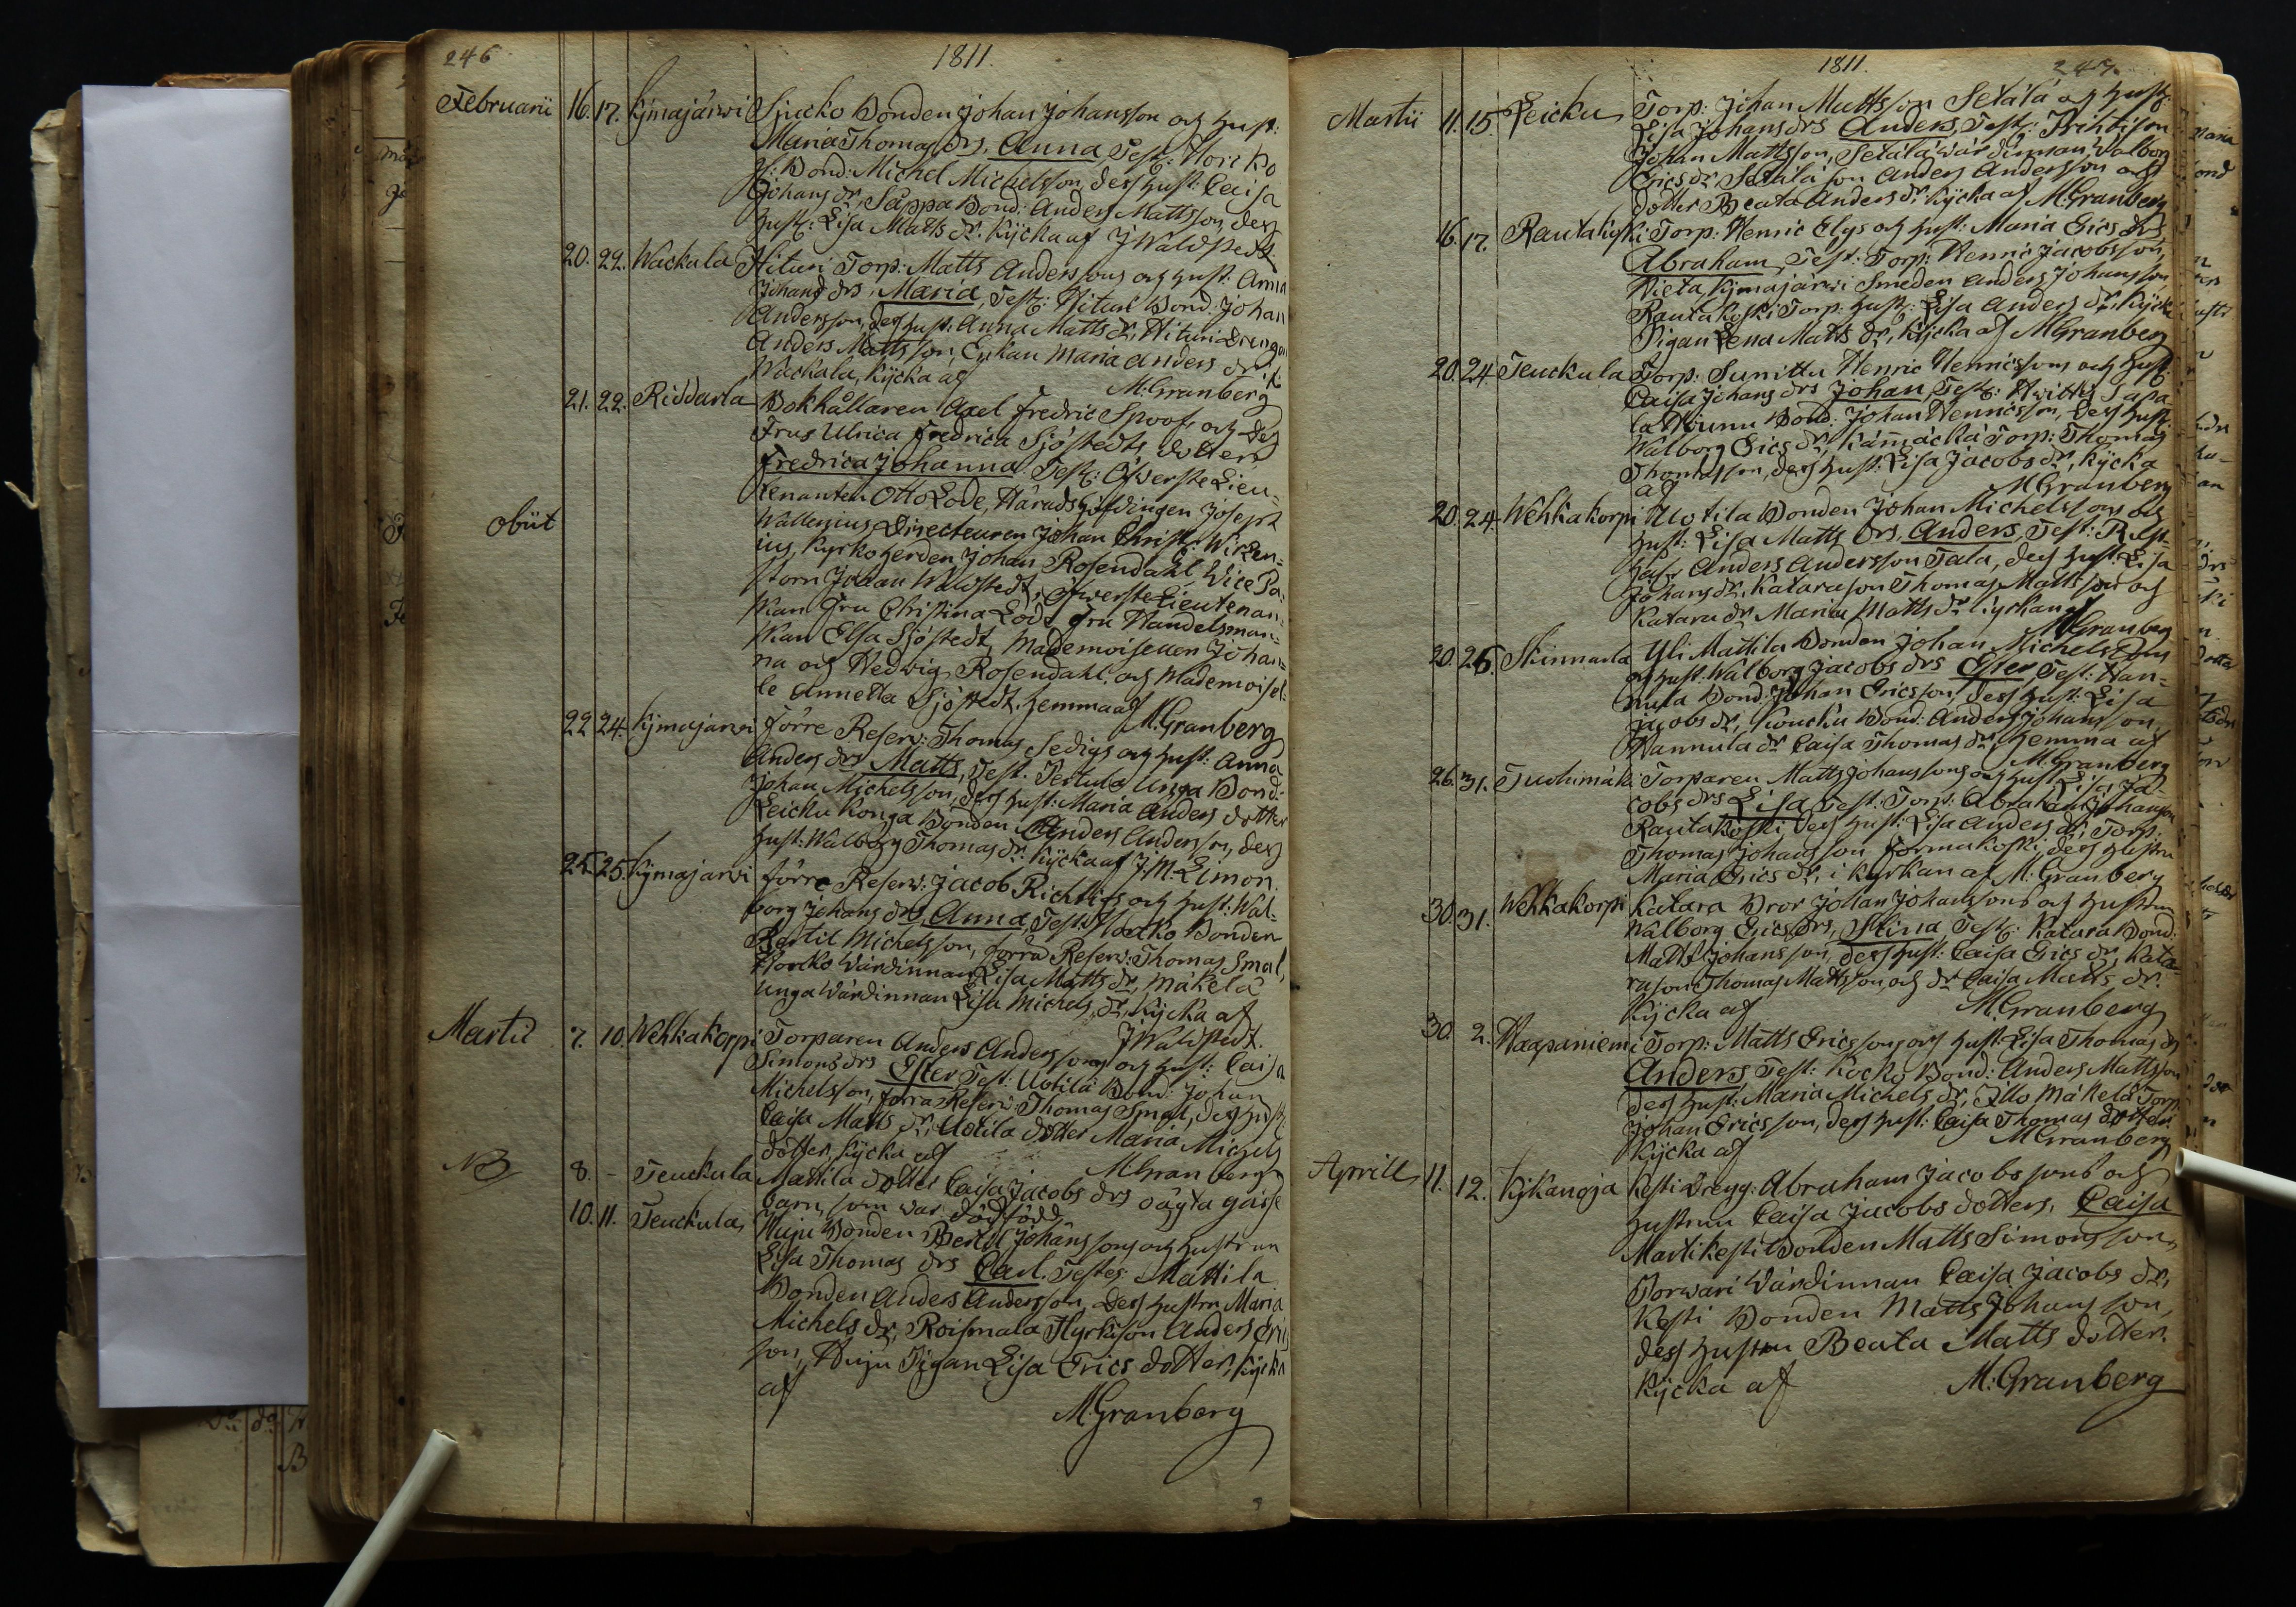 246
1811.
Februarii 16. 17. Kÿmajärwi Sjucko Bonden Johan Johansson och hust:
Maria Thomas drs. Anna, Test:
Bond: Michel Michelsson, dess hust: Caisa
Johans dr, Säppä Bond: Anders Mattsson, dess
hust: Lisa Matts dr. Kÿcka af J Waldstedt.
20. 22. Wackala Hituri Torp: Matts Anderssons och hust: Anna
Johans drs, Maria, Test: Hituri Bond: Johan
Andersson, dess hust: Anna Matts dr, Hituri Drengen
Anders Mattsson, Enkan Maria Anders dr
Wackala, Kÿcka af M: Granberg
21. 22. Riddarla Bokhållaren Axel Fredric Spoofs och dess
Frus Ulrica Fredrica Sjöstedts dotter
Fredrica Johanna Test: Öfwerste Lieu-
tenanten Otto Lode, Häradshöfdingen Joseph
obiit
Wallenius, Directeuren Johan Christ:
ius, Kyrkoherden Johan Rosendahl, Vice Pa-
storn Johan Waldstedt, öfwerste Lieutenan-
skan Fru Christina Lode, Fru Handelsman-
skan Elsa Sjöstedt, Mademoisellen Johan-
na och Hedwig Rosendahl, och Mademoisel-
le Annetta Sjöstedt. hemma af
M: Granberg
22 24. Kÿmajärwi Förre Reserv: Thomas Sedigs och hust: Anna
Anders drs Matts, Test. Pertula Unga Bond:
Johan Michelsson, dess hust: Maria Anders dotter
Leicku Konga Bonden Anders Andersson, dess
hust: Walborg Thomas dr. Kÿcka af J. M. Limon.
25. 25. Kÿmajärwi förre Reserv: Jacob Richtigs och hust: Wal-
borg Johans drs, Anna, Test: Bonden
Bertil Michelsson, förra Reserv: Thomas Smal,
Wärdinnan Lisa Matts dr, Mäkelä
unga Wärdinnan Lisa Michels dr, Kÿcka af
J Waldstedt.
Martii 7. 10. Wehkakorpi Torparen Anders Anderssons och hust: Caisa
Simons drs Ester Test: Uotila Bond: Johan
Michelsson, förra Reserv: Thomas Smal, dess hust:
Caisa Matts dr, Uotila dotter Maria Michels
dotter, Kÿcka af M: Granberg
NB 8. - Teuckula Mattila dotter Caisa Jacobs drs oägta gosse
barn, som war dödfödd
10. 11. Teuckula, Huju Bonden Bertil Johanssons och hustrun
Lisa Thomas drs Carl. Testes Mattila
Bonden Anders Andersson, dess hustru Maria
Michels dr, Roismala Hyrkison Anders Erics
son, Huju Pigan Lisa Erics dotter, Kÿcka
af
M: Granberg
1811.
247.
Martii 11. 15. Leicku Torp: Johan Mattsson Setälä och hust:
Lisa Johans drs Anders, Test:
Johan Mattsson, Setälä Wärdinnan Walborg
Erics dr Setälä son Anders Andersson och
dotter Beata Anders dr. Kÿcka af M: Granberg
16. 17. Rautakoski Torp: Henric Elgs och hust: Maria Erics drs
Abraham, Test: Torp: Henric Jacobsson,
Kÿmajärwi Smeden Anders Johansson,
Rautakoski Torp: hust: Lisa Anders dr, Kÿcka
Pigan Lena Matts dr, Kÿcka af M: Granberg
20. 24. Teuckula Torp: Henric Henricssons och hust:
Caisa Johans drs Johan, Test:
Bond: Johan Henricsson, dess hust:
Walborg Erics dr, Kämäckä Torp: Thomas
Thomasson, dess hust: Lisa Jacobs dr, Kÿcka
af M: Granberg
20. 24. Wehkakorpi Uotila Bonden Johan Michelssons och
hust: Lisa Matts drs, Anders, Test:
Anders Andersson Tala, dess hust: Lisa
Johans dr, Katara son Thomas Mattsson och
Katara dr Maria Matts dr kyrkan af
M: Granberg
20. 26. Skinnarla Yli Mattila Bonden Johan Michelssons
och hust: Walborg Jacobs drs Ester Test: Han-
nula Bond: Johan Ericsson, dess hust: Lisa
Jacobs dr, Koucku Bond: Anders Johansson,
Hannula dr Caisa Thomas dr, hemma af
M: Granberg
26. 31. Tuohimäki Torparen Matts Johanssons och hust: Lisa Ja-
cobs drs Lisa Test: Torp: Abraham Johansson
Rautakoski, dess hust: Lisa Anders dr, Torp:
Thomas Johansson Jormakoski, dess hustru
Maria Erics dr, i kyrkan af M: Granberg
30. 31. Wehkakorpi Katara Bror Johan Johanssons och hustrun
Walborg Erics drs, Stina, Test: Katara Bond:
Matts Johansson, dess hust: Caisa Erics dr, Kata-
rason Thomas Mattsson och dr Caisa Matts dr.
Kÿcka af M: Granberg
30. 2. Haapaniemi Torp: Matts Ericssons och hust: Lisa Thomas drs
Anders Test: Kocko Bond: Anders Mattsson
dess hust: Maria Michels dr, Illo Mäkelä Torp:
Johan Ericsson, dess hust: Caisa Thomas dotter
Kÿcka af M: Granberg
Aprill 11. 12. Kÿkangja Kesti Dreng: Abraham Jacobssons och
hustrun Caisa Jacobs dotters, Caisa
Martikesti Bonden Matts Simonsson,
Torwari Wärdinnan Caisa Jacobs dr,
Kesti Bonden Matts Johansson,
dess hustru Beata Matts dotter.
Kÿcka af M: Granberg